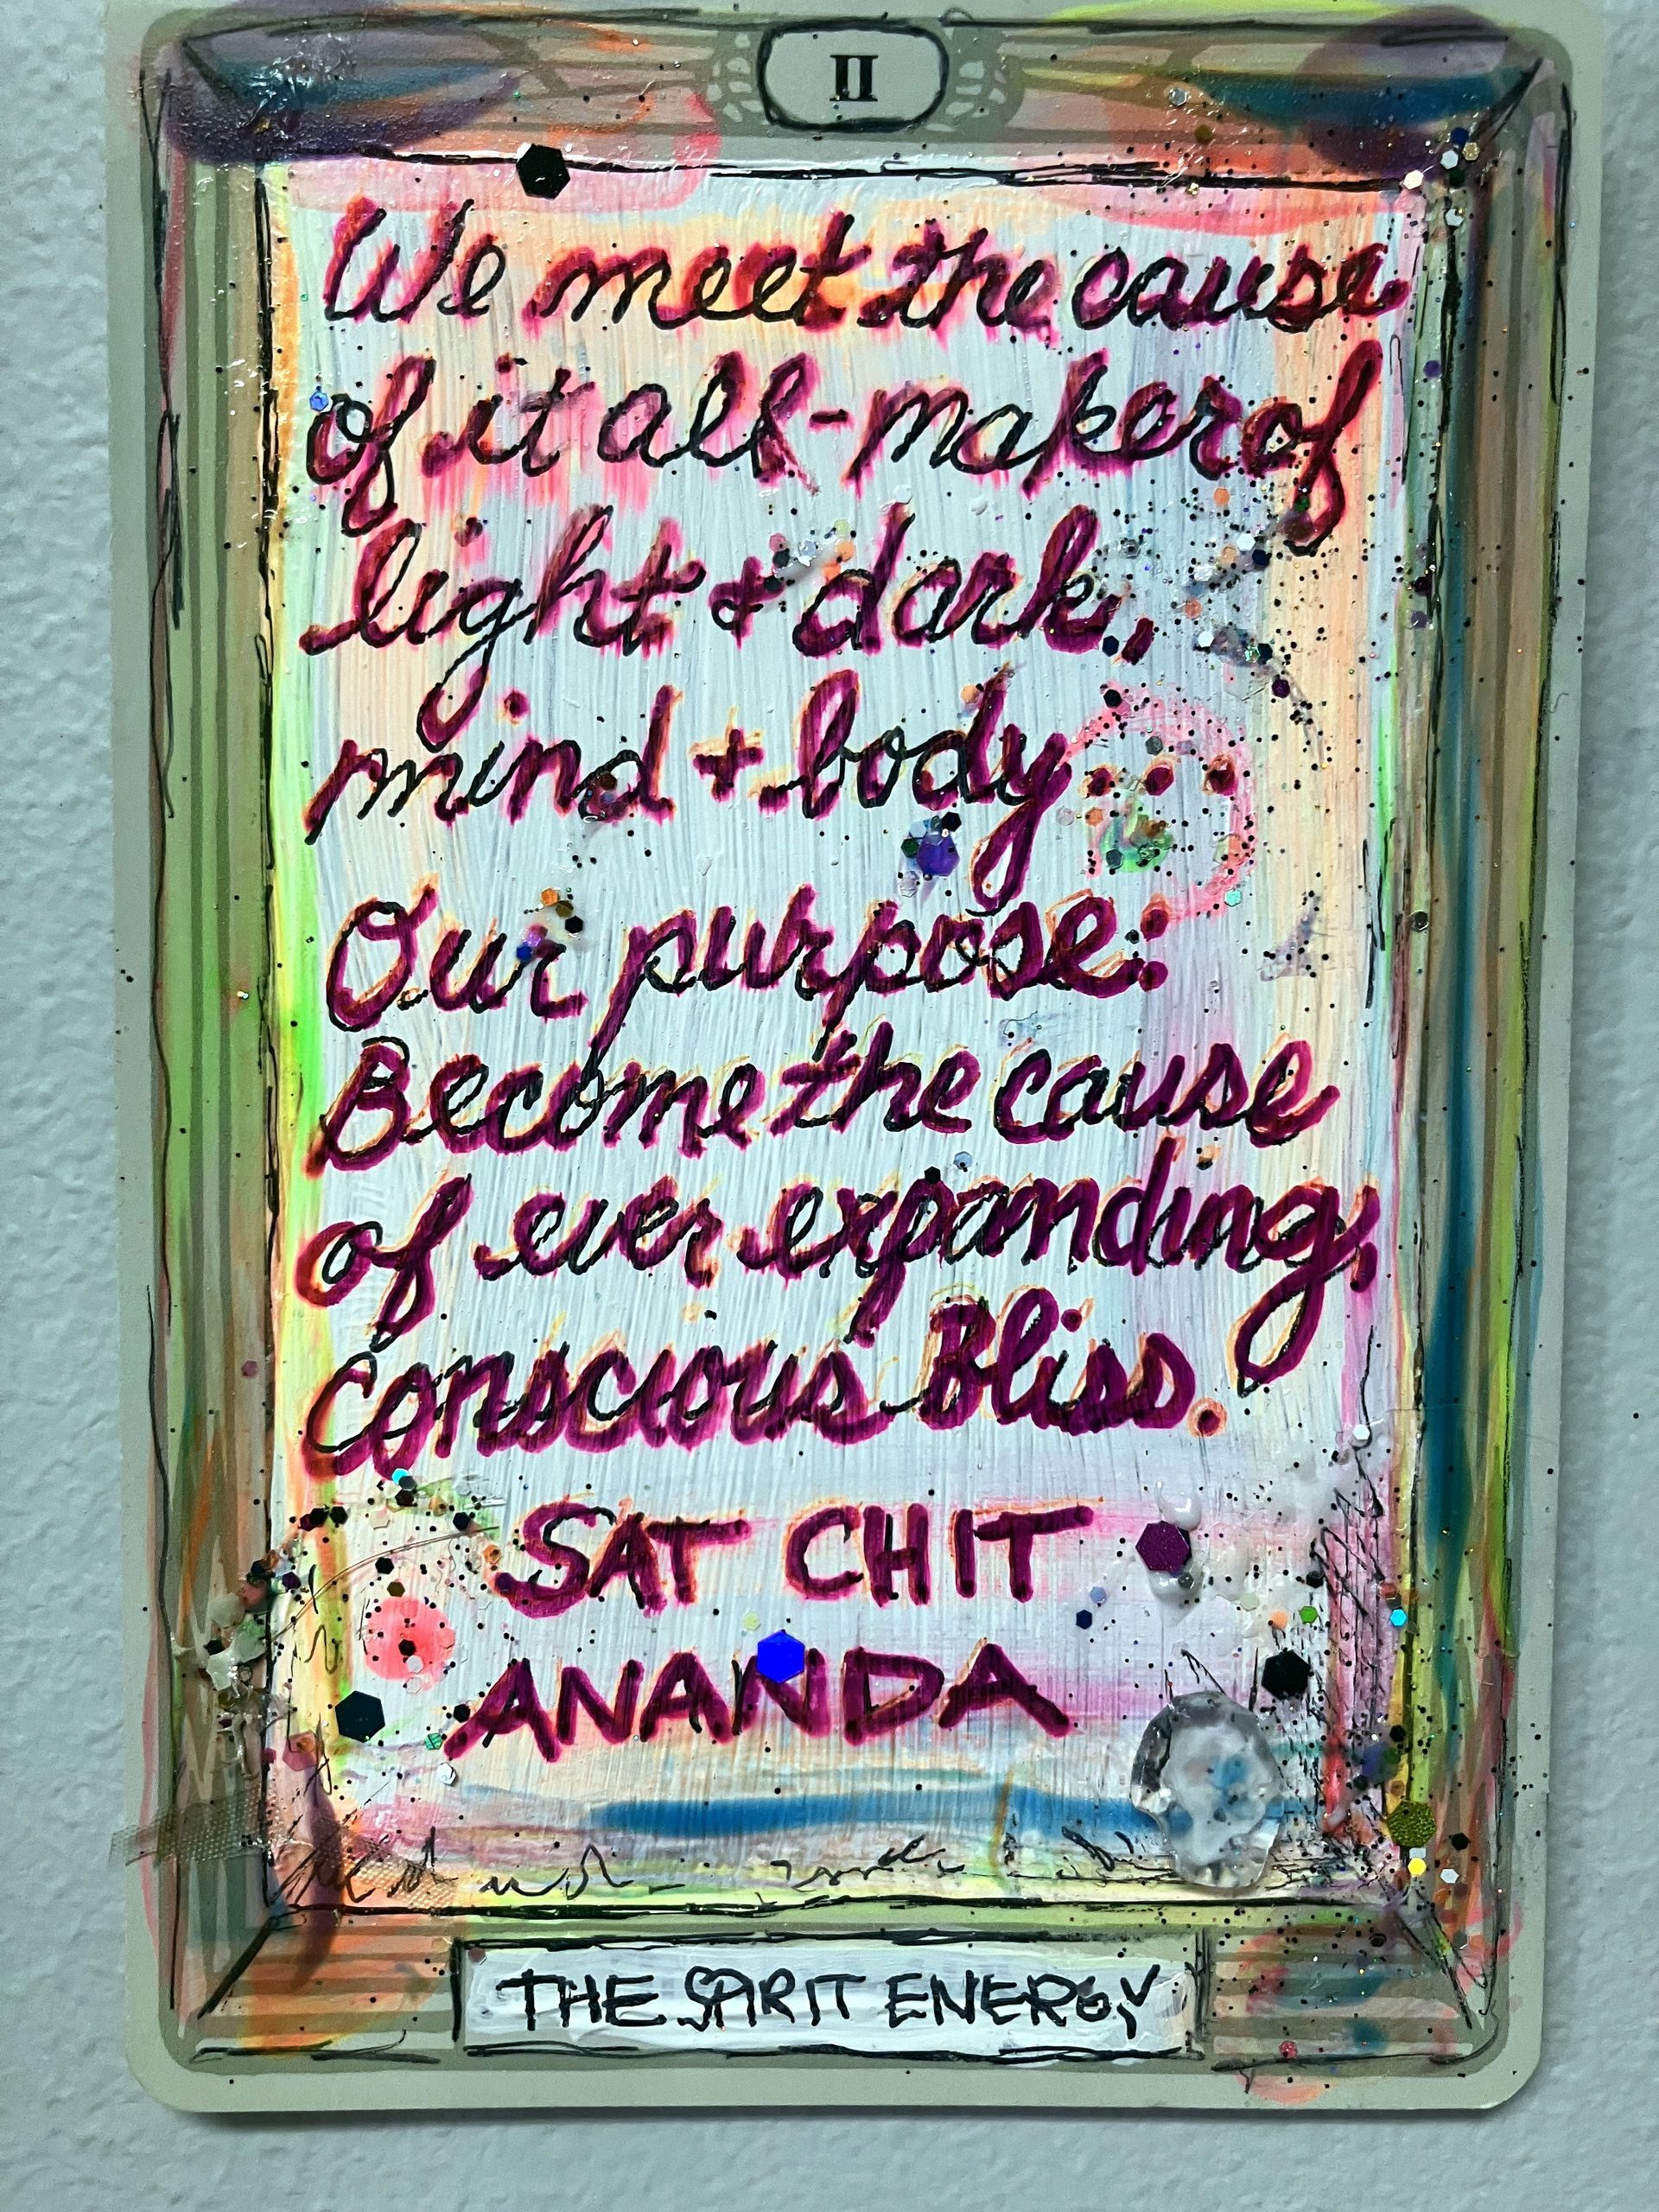 II
We meet the cause
of it all - maker of
light + dark,
mind + body...
Our purpose:
Become the cause
of ever expanding,
conscious Bliss.
SAT CHIT
ANANDA
THE SPIRIT ENERGY